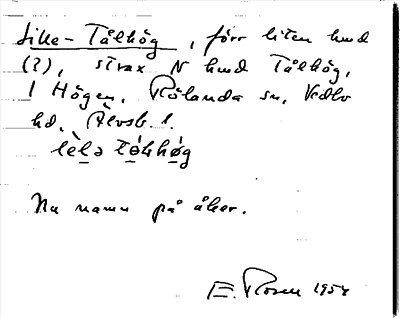 Lille-Tålhög, förr liten hmd
(?), strax N hmd Tålhög,
1 Högen, Rölanda sn, Vedbo
hd, Älvsb. l.
lèlə tóhhøg
Nu namn på åker.
E. Rosen 1954